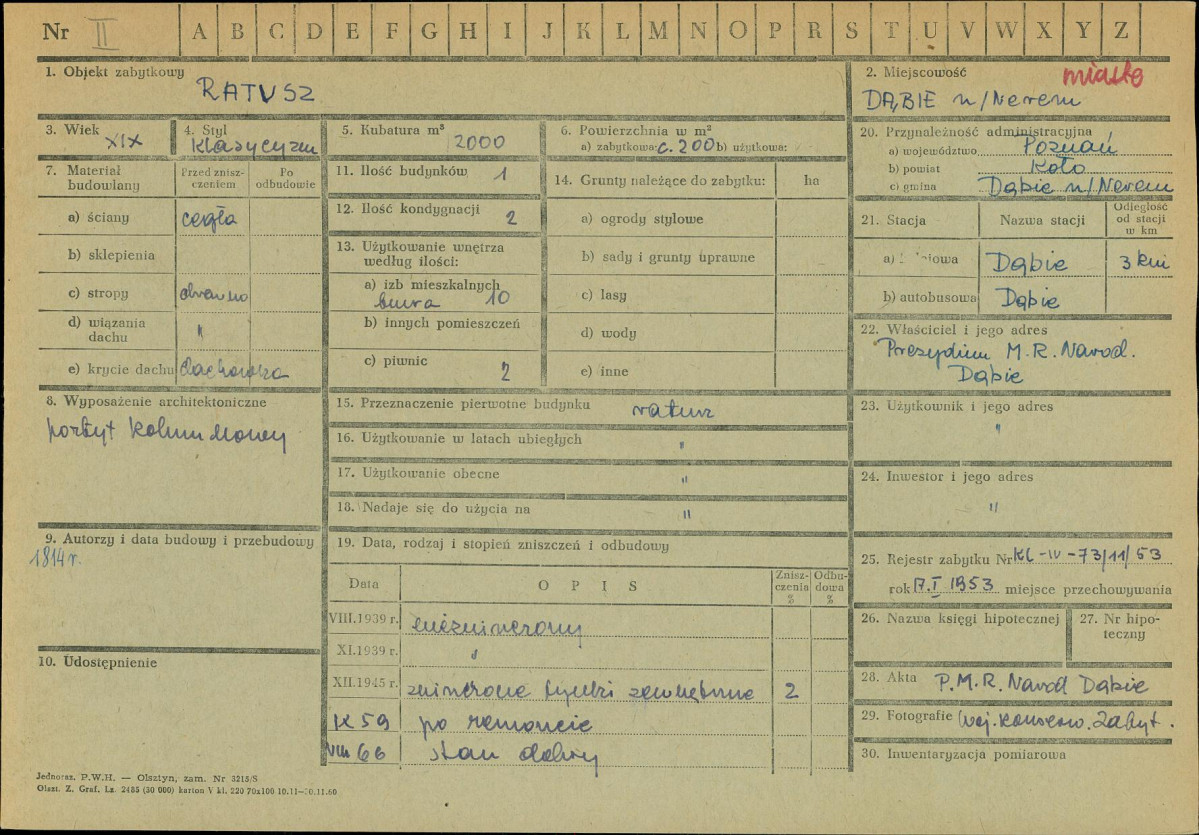 Nr II A B C D E F G H I J K L M N O P R S T U V W X Y Z
1. Objekt zabytkowy
RATUSZ
2. Miejscowość
miasto
DĄBIE n/Nerem
3. Wiek
XIX
4. Styl
Klasycyzm
5. Kubatura m³
2000
6. Powierzchnia w m²
a) zabytkowa: c. 200 b) użytkowa:
20. Przynależność administracyjna
a) województwo Poznań
b) powiat Koło
c) gmina Dąbie n/Nerem
7. Materiał budowlany
Przed zniszczeniem
Po odbudowie
a) ściany cegła
b) sklepienia
c) stropy drewno
d) wiązania dachu "
e) krycie dachu dachówka
11. Ilość budynków 1
12. Ilość kondygnacji 2
13. Użytkowanie wnętrza
według ilości:
a) izb mieszkalnych
biura 10
b) innych pomieszczeń
c) piwnic 2
14. Grunty należące do zabytku: ha
a) ogrody stylowe
b) sady i grunty uprawne
c) lasy
d) wody
e) inne
21. Stacja Nazwa stacji Odległość od stacji w km
a) Dąbie 3 km
b) autobusowa Dąbie
22. Właściciel i jego adres
Prezydium M.R. Narod.
Dąbie
8. Wyposażenie architektoniczne
portyk kolumnowy
15. Przeznaczenie pierwotne budynku ratusz
16. Użytkowanie w latach ubiegłych "
17. Użytkowanie obecne "
18. Nadaje się do użycia na "
23. Użytkownik i jego adres
"
24. Inwestor i jego adres
"
9. Autorzy i data budowy i przebudowy
1814 r.
10. Udostępnienie
19. Data, rodzaj i stopień zniszczeń i odbudowy
Data OPIS Zniszczenia % Odbudowa %
VIII.1939 r. niezniszczony
XI.1939 r. "
XII.1945 r. zniszczone tynki zewnętrzne 2
IX 59 po remoncie
VIII 66 stan dobry
25. Rejestr zabytku Nr KL-IV-73/11/53
rok 17.I 1953 miejsce przechowywania
26. Nazwa księgi hipotecznej
27. Nr hipoteczny
28. Akta P.M.R. Narod Dąbie
29. Fotografie Woj. Konserw. Zabyt.
30. Inwentaryzacja pomiarowa
Jednoraz. P.W.H. — Olsztyn, zam. Nr 3215/S
Olszt. Z. Graf. Lz. 2485 (30 000) karton V kl. 220 70x100 10.11—30.11.60